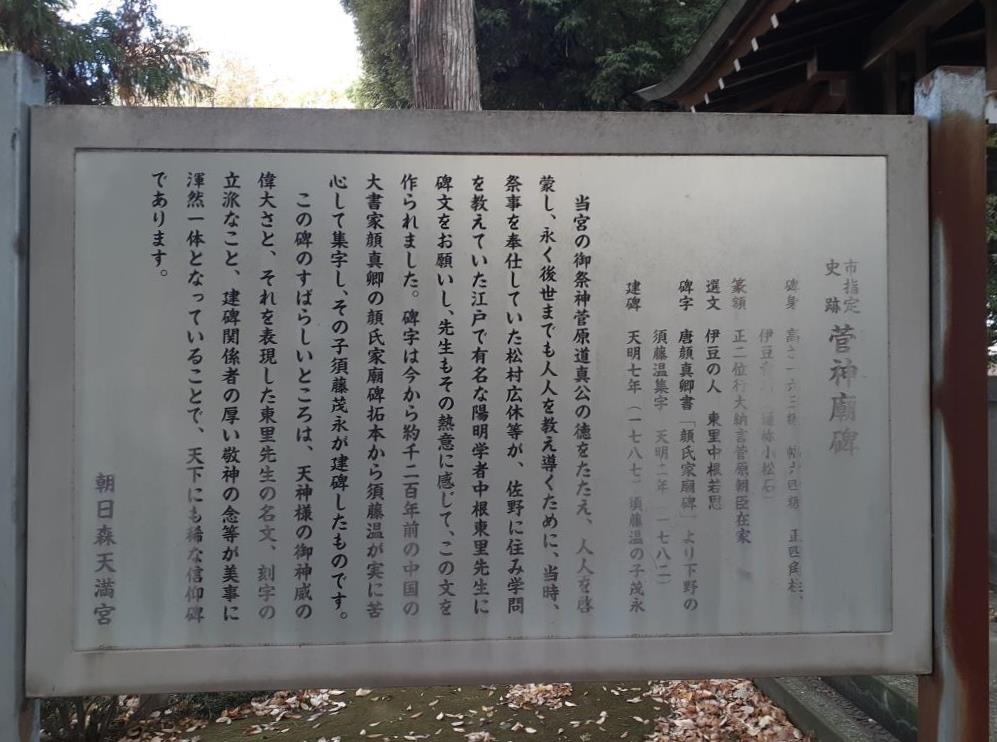 市指定
史跡
菅神廟碑
碑身 高さ一六三糎 幅六四糎 正四角柱、
伊豆 (通称小松石)
篆額 正二位行大納言菅原朝臣在家
選文 伊豆の人 東里中根若思
碑字 唐顔真卿書「顔氏家廟碑」より下野の
須藤温集字 天明二年(一七八二)
建碑 天明七年(一七八七)須藤温の子茂永
当宮の御祭神菅原道真公の徳をたたえ、人人を啓
蒙し、永く後世までも人人を教え導くために、当時、
祭事を奉仕していた松村広休等が、佐野に住み学問
を教えていた江戸で有名な陽明学者中根東里先生に
碑文をお願いし、先生もその熱意に感じて、この文を
作られました。碑字は今から約千二百年前の中国の
大書家顔真卿の顔氏家廟碑拓本から須藤温が実に苦
心して集字し、その子須藤茂永が建碑したものです。
この碑のすばらしいところは、天神様の御神威の
偉大さと、それを表現した東里先生の名文、刻字の
立派なこと、建碑関係者の厚い敬神の念等が美事に
渾然一体となっていることで、天下にも稀な信仰碑
であります。
朝日森天満宮